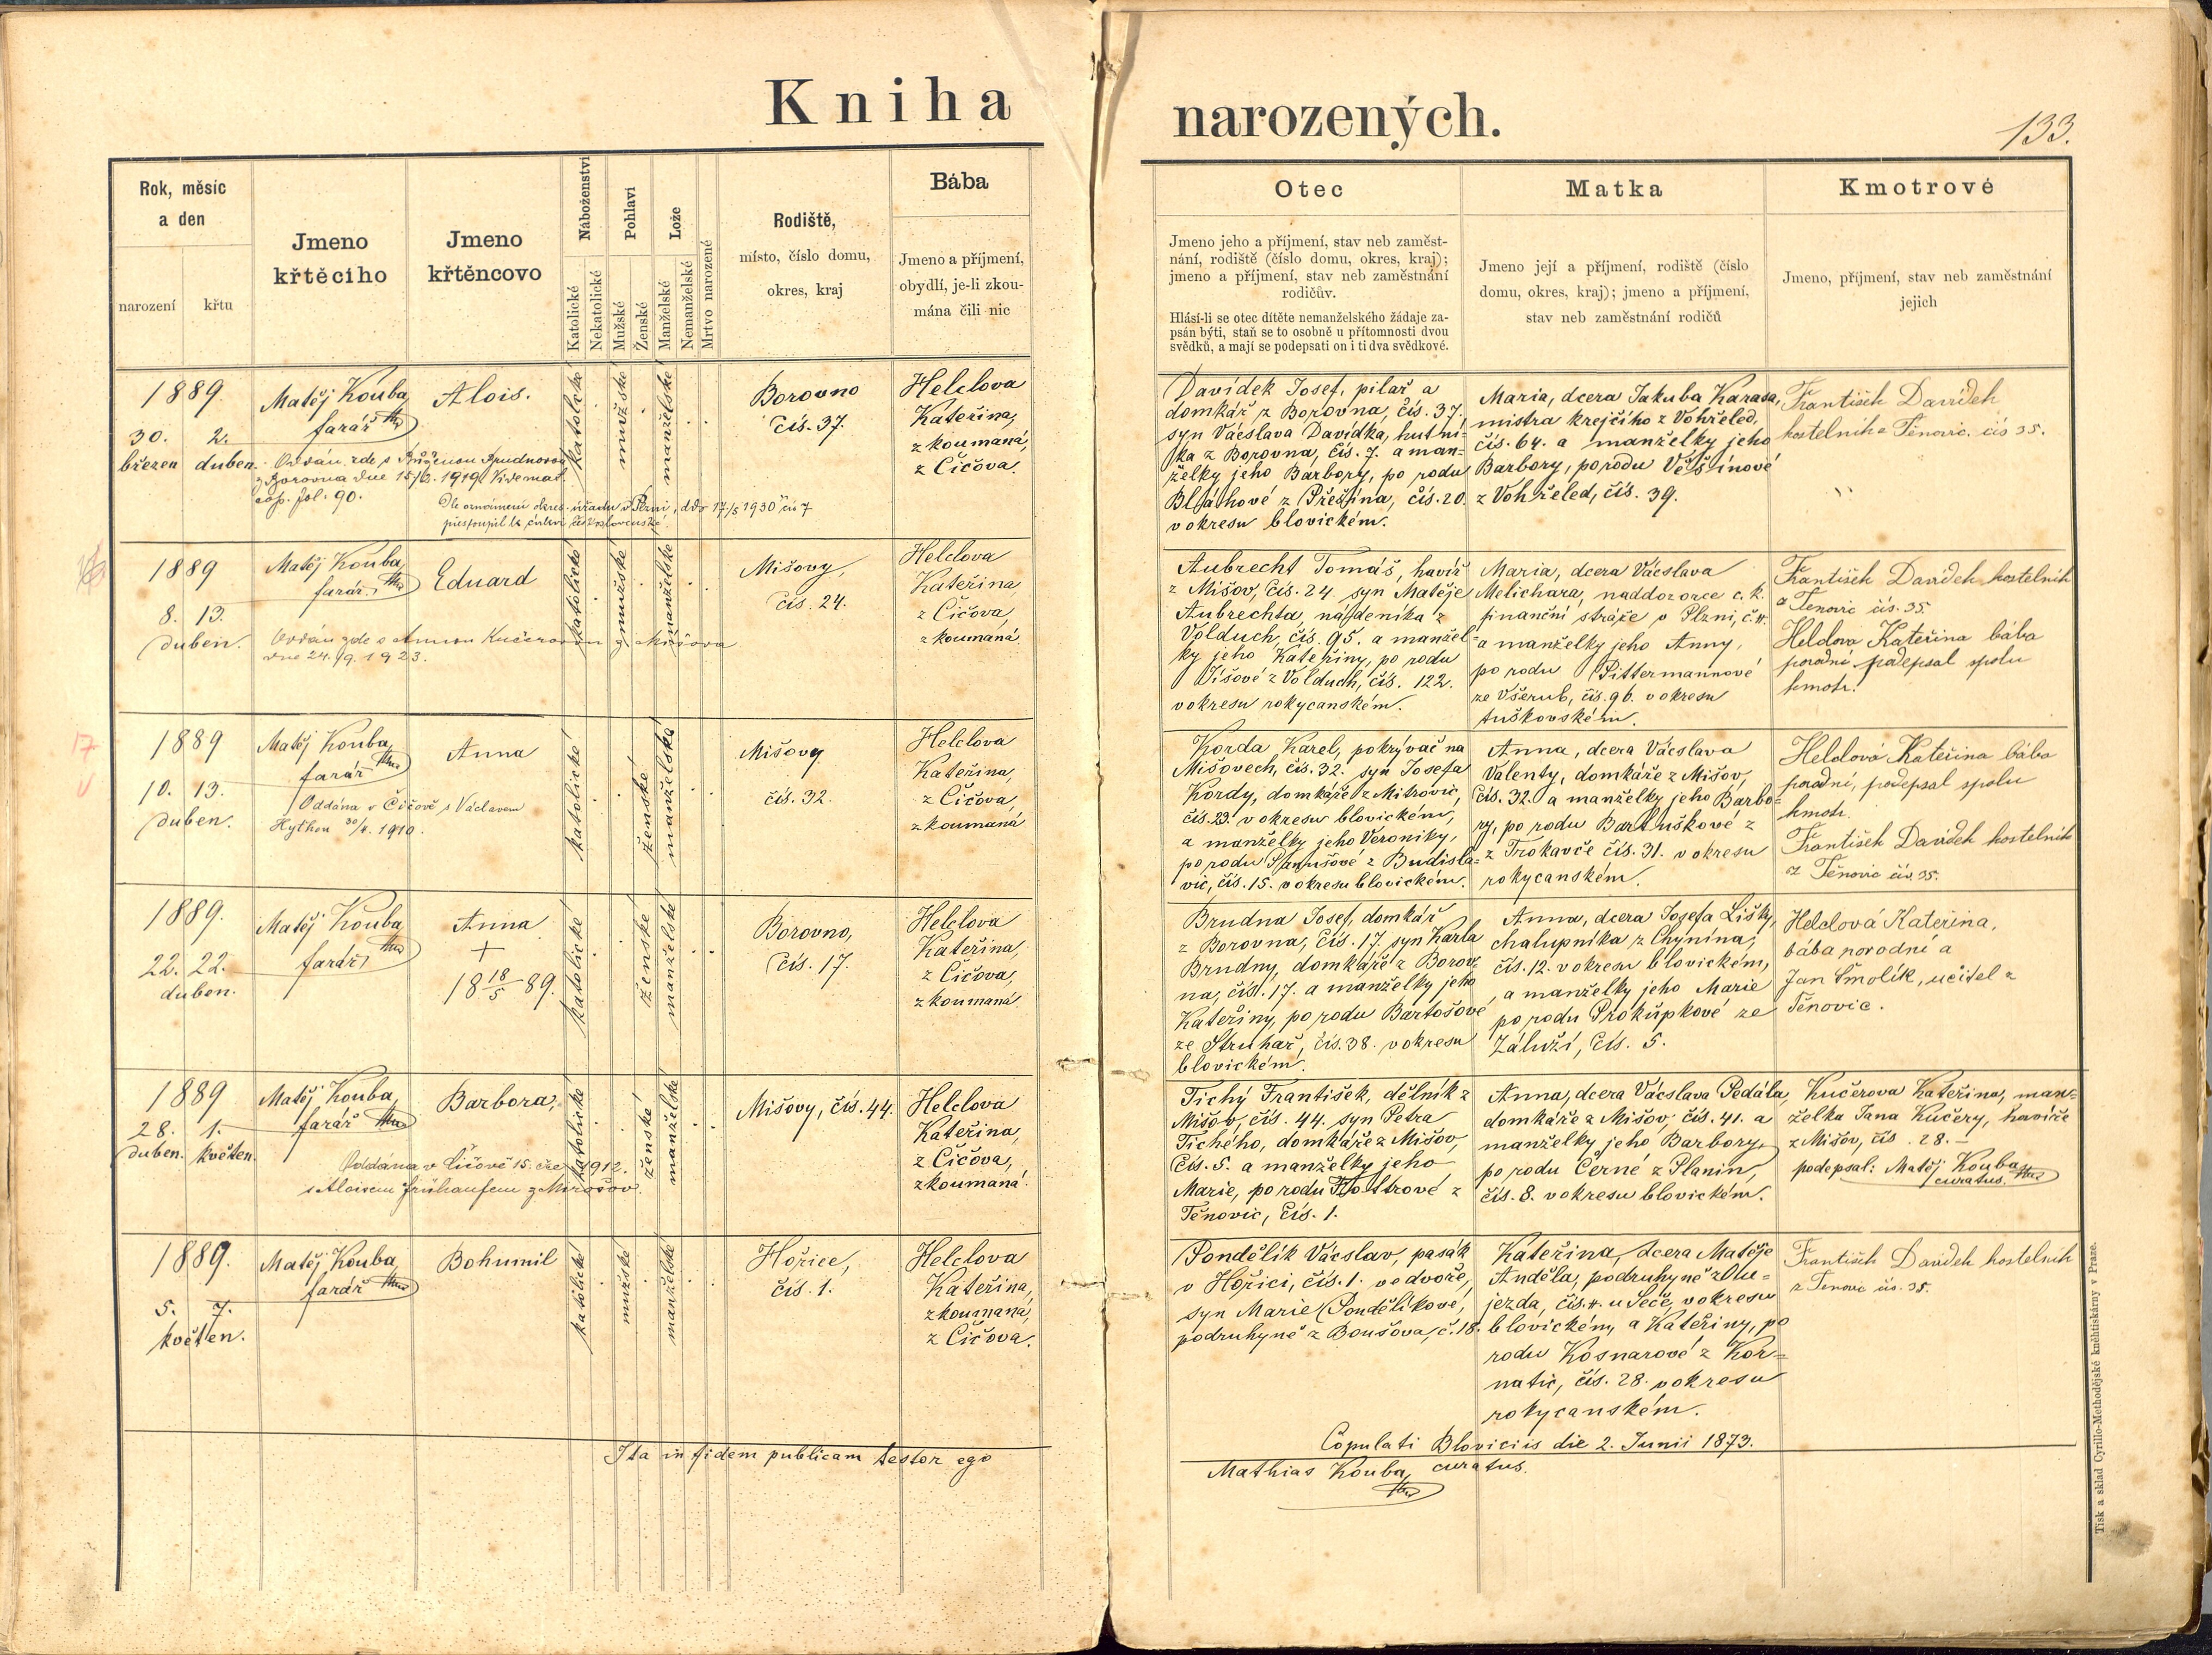 Kniha
narozených.
133.
Rok, měsíc
a den
narození
křtu
Jmeno
křtěcího
Jmeno
křtěncovo
Náboženství
Katolické
Nekatolické
Pohlaví
Mužské
Ženské
Lože
Manželské
Nemanželské
Mrtvo narozené
Rodiště,
místo, číslo domu,
okres, kraj
Bába
Jmeno a příjmení,
obydlí, je-li zkou-
mána čili nic
Otec
Jmeno jeho a příjmení, stav neb zaměst-
nání, rodiště (číslo domu, okres, kraj);
jmeno a příjmení, stav neb zaměstnání
rodičův.
Hlásí-li se otec dítěte nemanželského žádaje za-
psán býti, staň se to osobně u přítomnosti dvou
svědků, a mají se podepsati on i ti dva svědkové.
Matka
Jmeno její a příjmení, rodiště (číslo
domu, okres, kraj); jmeno a příjmení,
stav neb zaměstnání rodičů
Kmotrové
Jmeno, příjmení, stav neb zaměstnání
jejich
1889
30. 2.
březen duben.
Matěj Kouba,
farář
Alois.
katolické
mužské
manželské
Borovno
čís. 37.
Helclova
Kateřina,
zkoumaná,
z Čičova.
Oddán zde s Růženou Brudnovou
z Borovna dne 15/2. 1919. Vide mat.
cop. fol. 90.
Dle oznámení okres. úřadu v Plzni, ddo 17/5 1930 čís 7
přestoupil k církvi československé.
Davídek Josef, pilař a
domkář z Borovna, čís. 37.
syn Vácslava Davídka, hutní-
ka z Borovna, čís. 7. a man-
želky jeho Barbory, po rodu
Bláhové z Přešína, čís. 20.
v okresu blovickém.
Maria, dcera Jakuba Karasa,
mistra krejčího z Vohřeled,
čís. 64. a manželky jeho
Barbory, po rodu Věšínové
z Vohřeled, čís. 39.
František Davídek
kostelník z Těnovic. čís 35.
1889
8. 13.
duben.
Matěj Kouba,
farář.
Eduard
katolické
mužské
manželské
Mišovy
čís. 24.
Helclova
Kateřina
z Čičova,
zkoumaná
Oddán zde s Annou Kučerovou z Mišova
dne 24./9. 1923.
Aubrecht Tomáš, havíř
z Mišov, čís. 24. syn Matěje
Aubrechta, nádeníka z
Volduch, čís. 95. a manžel-
ky jeho Kateřiny, po rodu
Píšové z Volduch, čís. 122.
v okresu rokycanském.
Maria, dcera Vácslava
Melichara, naddozorce c. k.
finanční stráže v Plzni, č. 4.
a manželky jeho Anny,
po rodu Pittermannové
ze Všerub, čís. 96. v okresu
tuškovském.
František Davídek kostelník
z Těnovic čís. 35.
Helclová Kateřina bába
porodní podepsal spolu
kmotr.
17
1889
10. 13.
duben.
Matěj Kouba,
farář
Anna
katolické
ženské
manželské
Mišovy
čís. 32.
Helclova
Kateřina,
z Čičova,
zkoumaná
Oddána v Čičově s Václavem
30/4. 1910.
Korda, Karel, pokrývač na
Mišovech, čís. 32. syn Josefa
Kordy, domkáře z Mitrovic,
čís. 23. v okresu blovickém,
a manželky jeho Veroniky,
po rodu Hanušové z Budisla-
vic, čís. 15. v okresu blovickém.
Anna, dcera Vácslava
Valenty, domkáře z Mišov,
čís. 32. a manželky jeho Barbo-
ry, po rodu Bartuškové z
z Trokavče čís. 31. v okresu
rokycanském.
Helclová Kateřina bába
porodní, podepsal spolu
kmotr.
František Davídek kostelník
z Těnovic čís. 35.
1889.
22. 22.
duben.
Matěj Kouba
farář,
Anna
+
18 18/5 89.
katolické
ženské
manželské
Borovno,
čís. 17.
Helclova
Kateřina,
z Čičova,
zkoumaná
Brudna Josef, domkář
z Borovna, čís. 17. syn Karla
Brudny, domkáře z Borov-
na, čísl. 17. a manželky jeho
Kateřiny, po rodu Bartošové
ze Struhař, čís. 38. v okresu
blovickém.
Anna, dcera Josefa Lišky,
chalupníka z Chynína,
čís. 12. v okresu blovickém,
a manželky jeho Marie
po rodu Prokůpkové ze
Záluží, čís. 5.
Helclová Kateřina,
bába porodní a
Jan Smolík, učitel z
Těnovic.
1889
28. 1.
duben. květen.
Matěj Kouba,
farář
Barbora,
katolické
ženské
manželské
Mišovy, čís. 44.
Helclova
Kateřina,
z Čičova,
zkoumaná.
Oddána v Čičově 15. 1912.
s Aloisem Frühaufem z Mirošov.
Tichý František, dělník z
Mišov, čís. 44. syn Petra
Tichého, domkáře z Mišov,
čís. 5. a manželky jeho
Marie, po rodu Kotrové z
Těnovic, čís. 1.
Anna, dcera Vácslava Pedála,
domkáře z Mišov čís. 41. a
manželky jeho Barbory,
po rodu Černé z Planin,
čís. 8. v okresu blovickém.
Kučerova Kateřina, man-
želka Jana Kučery, havíře
z Mišov, čís. 28.
podepsal: Matěj Kouba,
curatus.
1889.
5. 7.
květen.
Matěj Kouba,
farář
Bohumil
katolické
mužské
manželské
Hořice,
čís. 1.
Helclova
Kateřina,
zkoumaná,
z Čičova.
Pondělík Vácslav, pasák
v Hořici, čís. 1. ve dvoře,
syn Marie Pondělíkové,
podruhyně z Boušova, č. 18.
Kateřina, dcera Matěje
Anděla, podruhyně z Ou-
jezda, čís. 4. u Seče, v okresu
blovickém, a Kateřiny, po
rodu Kosnarové z Kor-
natic, čís. 28. v okresu
rokycanském.
František Davídek kostelník
z Těnovic čís. 35.
Copulati Bloviciis die 2. Junii 1873.
Ita in fidem publicam testor ego
Mathias Kouba, curatus.
Tisk a sklad Cyrillo-Methodějské knihtiskárny v Praze.